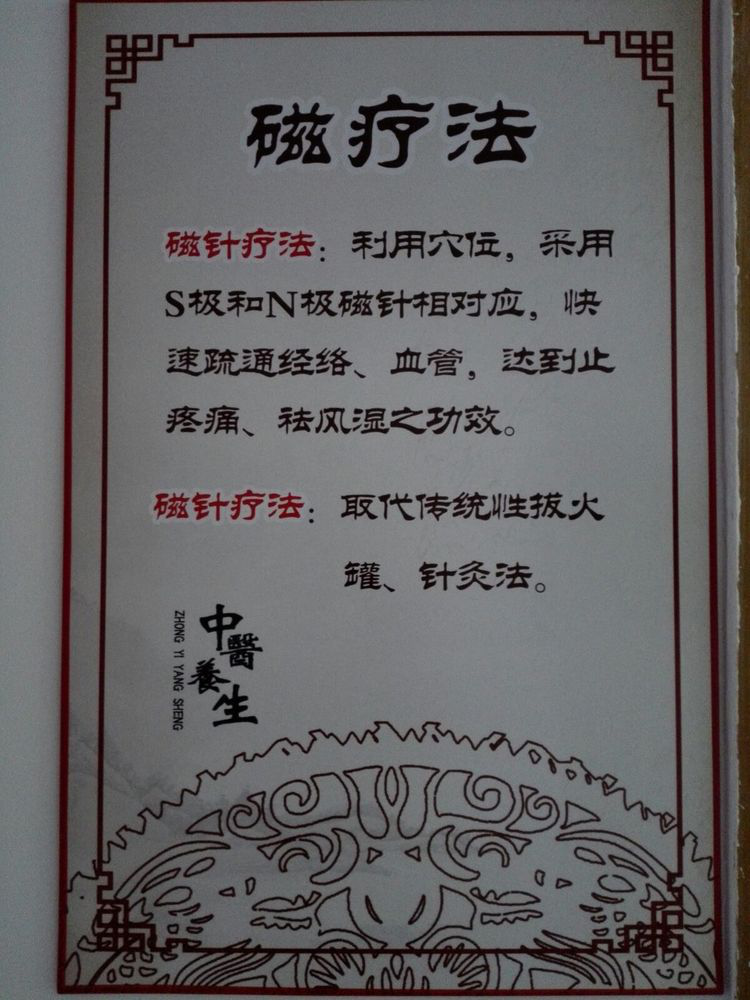 磁疗法
磁针疗法：利用穴位，采用
S极和N极磁针相对应，快
速疏通经络、血管，达到止
疼痛、祛风湿之功效。
磁针疗法：取代传统性拔火
罐、针灸法。
中醫養生
ZHONG YI YANG SHENG